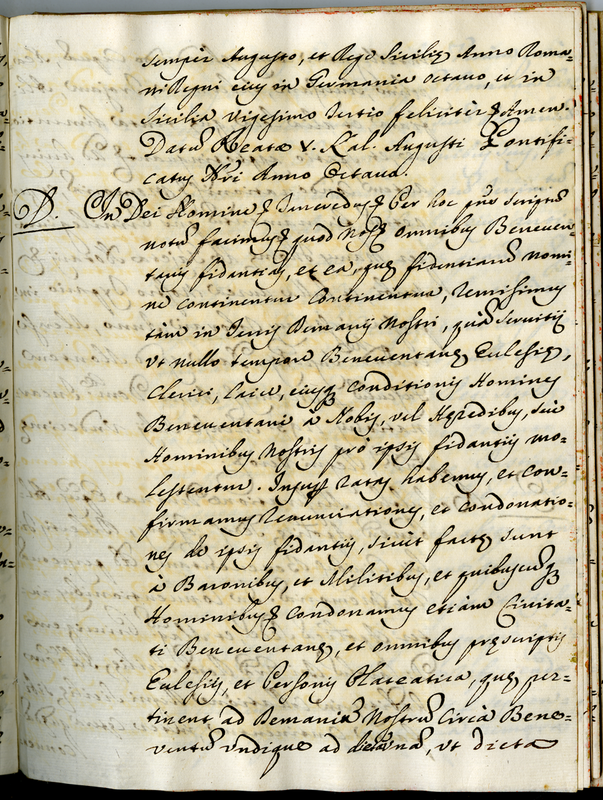 semper Augusto, et Rege Sicilię Anno Roma=
ni Regni eius in Germania octavo, et in
Sicilia vigesimo tertio feliciter Amen.
Datũ Reatæ V. Kal. Augusti Pontifi=
catus Nri Anno Octavo.
D. In Dei Nomine Per hoc pñs scriptũ
notũ facimus quod nos omnibus Beneven
tanis fidantias, et ea, quę fidentiarũ nomi=
ne continentur continentur, remisimus
tàm in terris Demanij Nostri, quã servitij
Ut nullo tempore Beneventanę Eclesię,
Clerici, laici, eiusq conditionis Homines
Beneventani à Nobis, vel Hęredibus, seù
Hominibus Nostris prò ipsis fidantijs mo=
lestentur. Insup ratas habemus, et con=
firmamus renunciationes, et condonatio=
nes de ipsis fidantijs, sicùt factę sunt
à Baronibus, et Militibus, et quibuscũq
Hominibus condonamus etiàm Civita=
ti Beneventanę, et omnibus pręscriptis
Eclesijs, et Personis Plateatica, quę per=
tinent ad Demaniũ Nostrũ Circà Bene=
ventũ undique ad, ut dicta